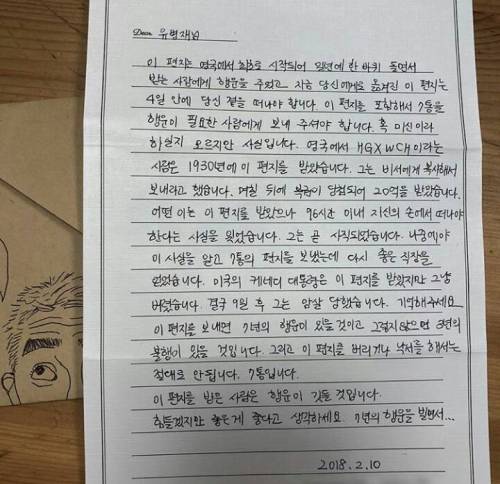 Dear 유병재님
이 편지는 영국에서 최초로 시작되어 일년에 한 바퀴 돌면서
받는 사람에게 행운을 주었고 지금 당신에게로 옮겨진 이 편지는
4일 안에 당신 곁을 떠나야 합니다. 이 편지를 포함해서 7통을
행운이 필요한 사람에게 보내 주셔야 합니다. 혹 미신이라
하실지 모르지만 사실입니다. 영국에서 HGXWCH이라는
사람은 1930년에 이 편지를 받았습니다. 그는 비서에게 복사해서
보내라고 했습니다. 며칠 뒤에 복권이 당첨되어 20억을 받았습니다.
어떤 이는 이 편지를 받았으나 96시간 이내 자신의 손에서 떠나야
한다는 사실을 잊었습니다. 그는 곧 사직되었습니다. 나중에야
이 사실을 알고 7통의 편지를 보냈는데 다시 좋은 직장을
얻었습니다. 미국의 케네디 대통령은 이 편지를 받았지만 그냥
버렸습니다. 결국 9일 후 그는 암살 당했습니다. 기억해주세요
이 편지를 보내면 7년의 행운이 있을 것이고 그렇지 않으면 3년의
불행이 있을 것입니다. 그리고 이 편지를 버리거나 낙서를 해서는
절대로 안됩니다. 7통입니다.
이 편지를 받은 사람은 행운이 깃들 것입니다.
힘들겠지만 좋은게 좋다고 생각하세요. 7년의 행운을 빌면서...
2018.2.10